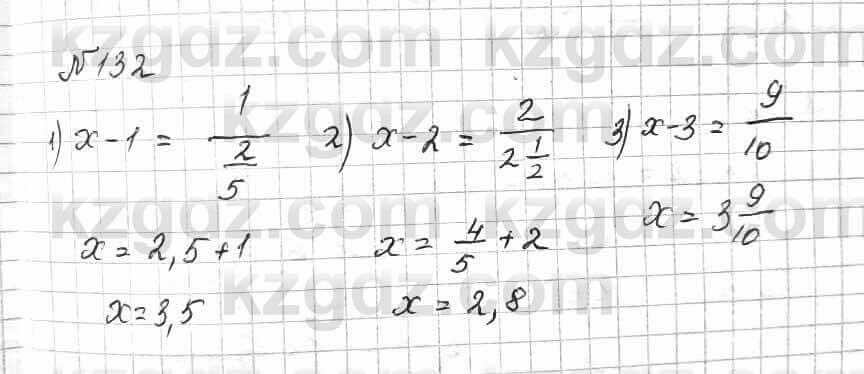 №132
1) x - 1 = 1/(2/5)
x = 2,5 + 1
x = 3,5
2) x - 2 = 2/(2 1/2)
x = 4/5 + 2
x = 2,8
3) x - 3 = 9/10
x = 3 9/10
kzgdz.com kzgdz.com
kzgdz.com
kzgdz.com kzgdz.com
kzgdz.com